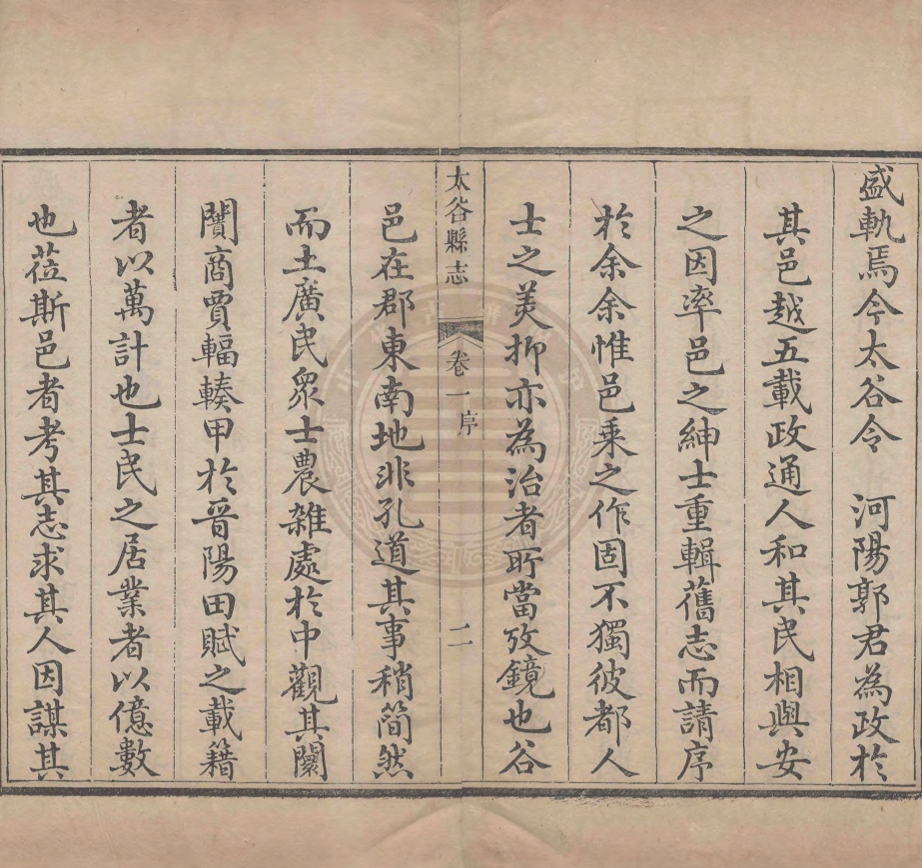 盛軌焉今太谷令　河陽郭君為政於
其邑越五載政通人和其民相與安
之因率邑之紳士重輯舊志而請序
於余余惟邑乘之作固不獨彼都人
士之美抑亦為治者所當攷鏡也谷
太谷縣志　卷一序　二
邑在郡東南地非孔道其事稍簡然
而土廣民眾士農雜處於中觀其闤
闠商賈輻輳甲於晉陽田賦之載籍
者以萬計也士民之居業者以億數
也蒞斯邑者考其志求其人因謀其